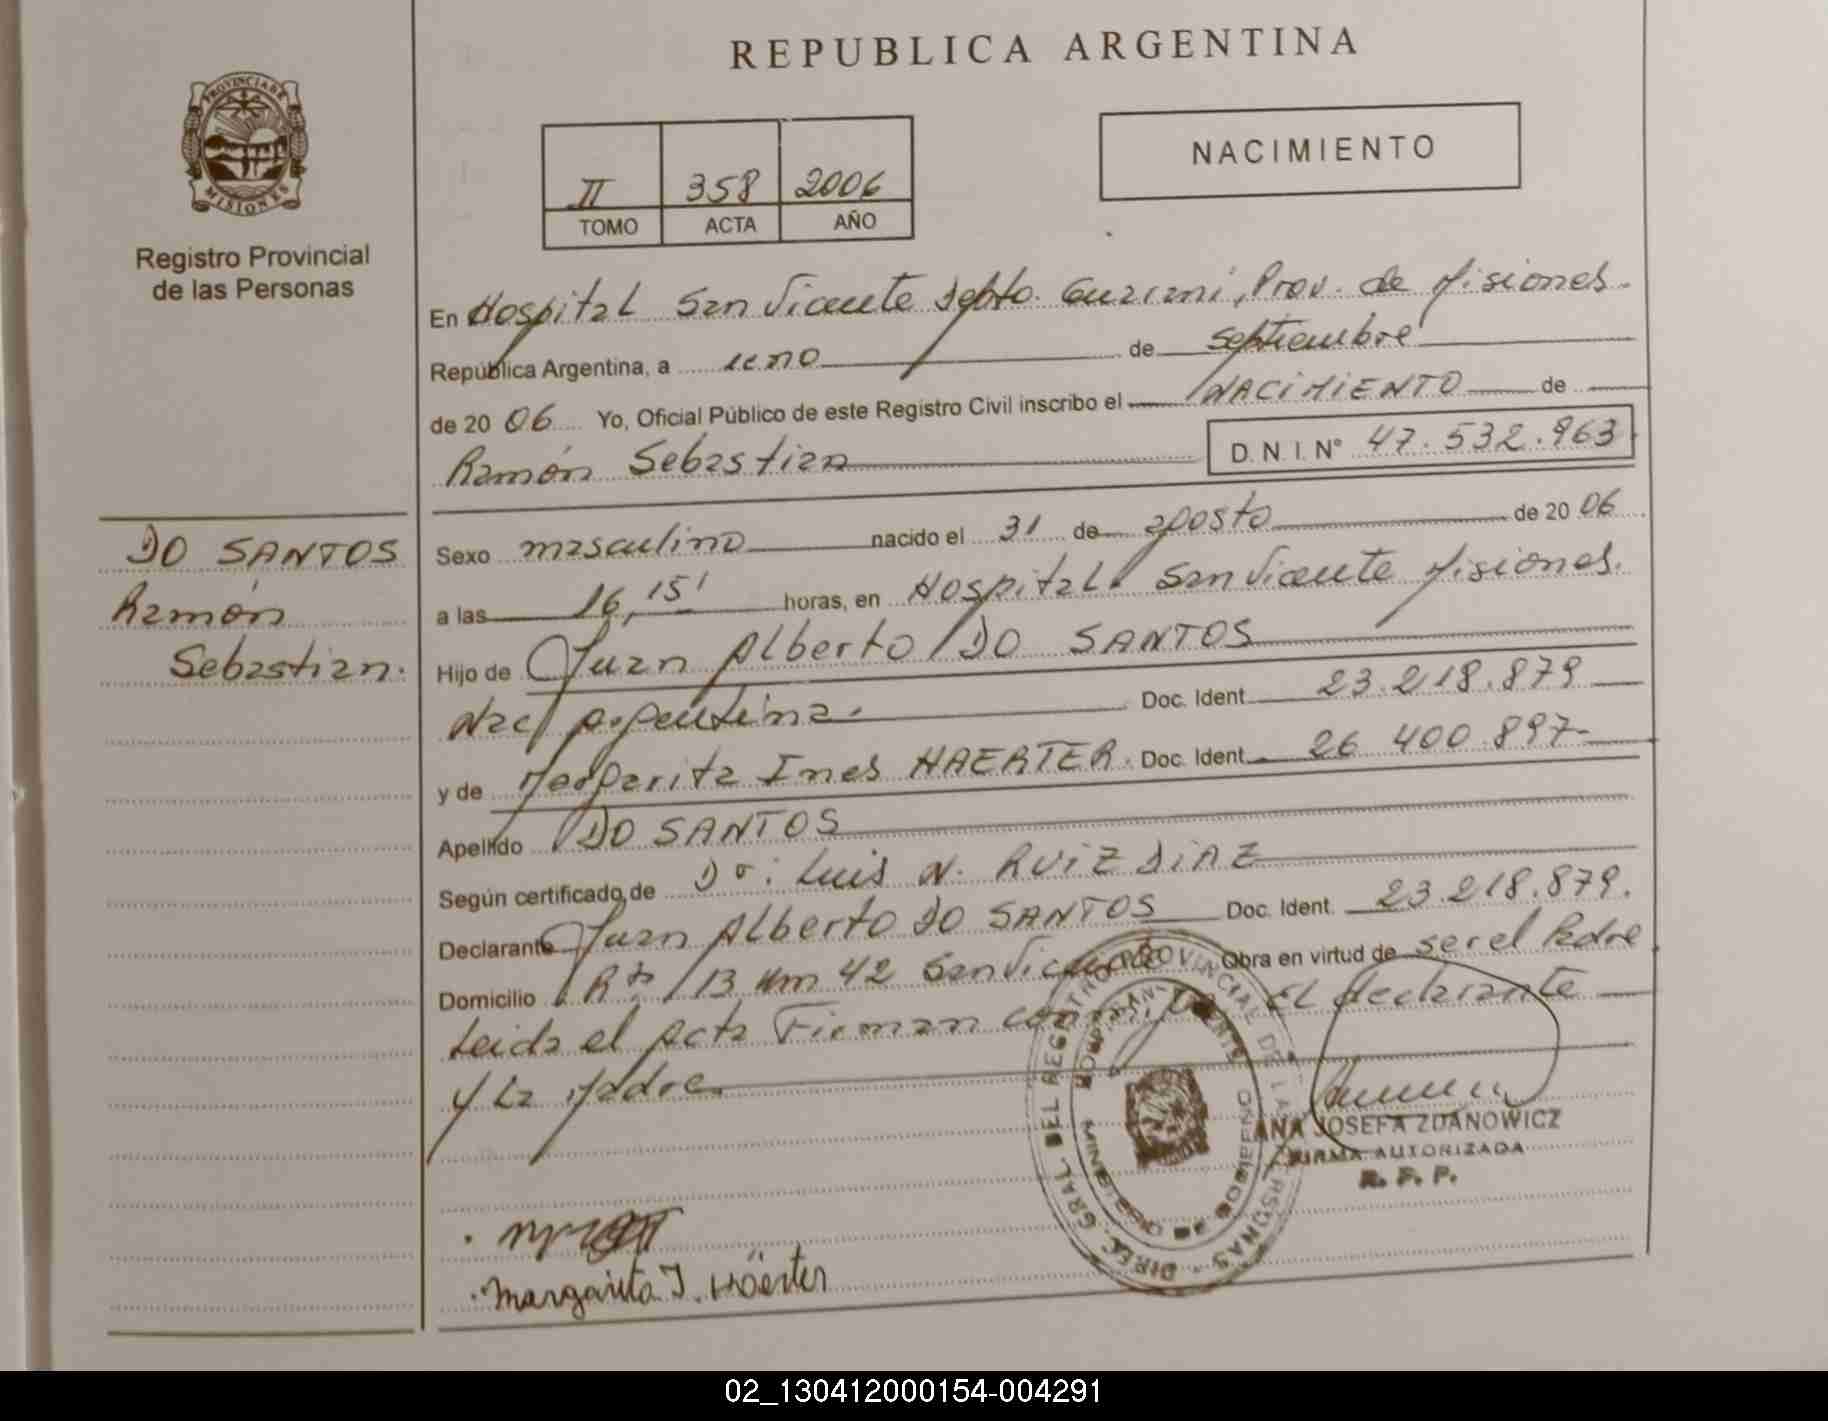 REPUBLICA ARGENTINA
PROVINCIA DE MISIONES
Registro Provincial
de las Personas
II 358 2006
TOMO ACTA AÑO
NACIMIENTO
En Hospital San Vicente Dpto. Guaraní, Prov. de Misiones.
República Argentina, a uno de septiembre
de 20 06 Yo, Oficial Público de este Registro Civil inscribo el NACIMIENTO de
Ramón Sebastian D. N. I. Nº 47.532.963
DO SANTOS
Ramón
Sebastian.
Sexo masculino nacido el 31 de agosto de 20 06
a las 16,15' horas, en Hospital San Vicente Misiones.
Hijo de Juan Alberto DO SANTOS
Nac Argentina. Doc. Ident. 23.218.879
y de Margarita Ines HAERTER. Doc. Ident. 26 400.897-
Apellido DO SANTOS
Según certificado de Dr: Luis N. RUIZ DIAZ
Declarante Juan Alberto DO SANTOS Doc. Ident. 23.218.879.
Domicilio Rta 13 Km 42 San Vicente Obra en virtud de ser el Padre
Leida el Acta Firman conmigo El declarante
y La Madre.
DIREC. GRAL. DEL REGISTRO PROVINCIAL DE LAS PERSONAS
HOSPITAL SAN VICENTE
MINISTERIO DE GOBIERNO
ANA JOSEFA ZDANOWICZ
FIRMA AUTORIZADA
R. P. P.
Margarita I. Häerter
02_130412000154-004291